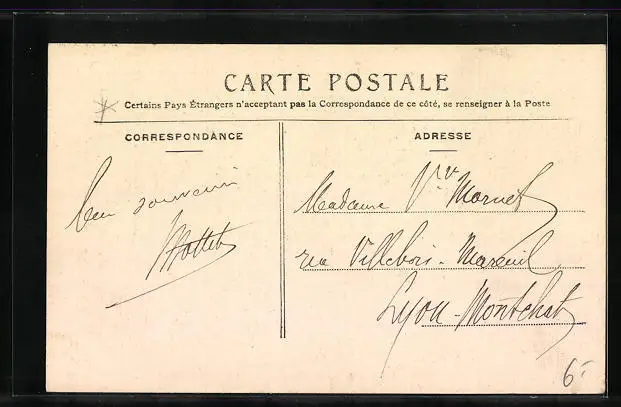 CARTE POSTALE
Certains Pays Étrangers n'acceptant pas la Correspondance de ce côté, se renseigner à la Poste
CORRESPONDANCE
ADRESSE
souvenir
Madame Vve Mornet
rue Villebois-Mareuil
Lyon-Montchat
6-